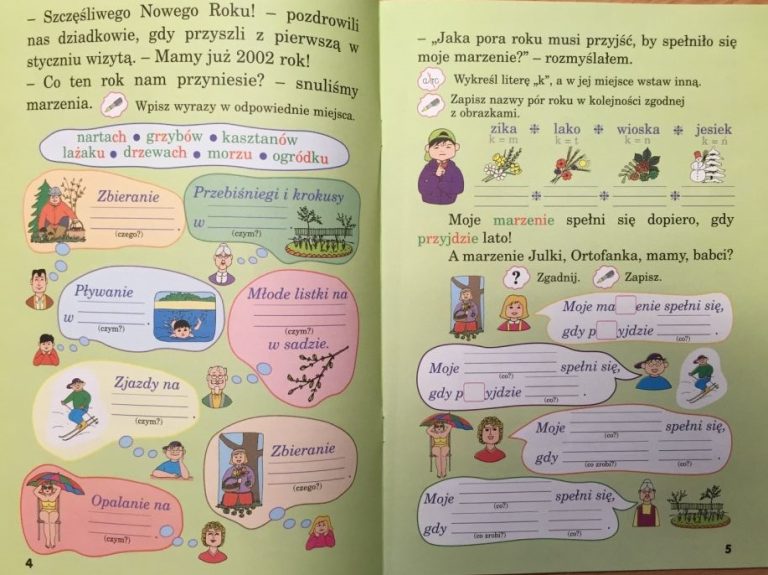 – Szczęśliwego Nowego Roku! – pozdrowili
nas dziadkowie, gdy przyszli z pierwszą w
styczniu wizytą. – Mamy już 2002 rok!
– Co ten rok nam przyniesie? – snuliśmy
marzenia.
Wpisz wyrazy w odpowiednie miejsca.
nartach • grzybów • kasztanów
lażaku • drzewach • morzu • ogródku
Zbieranie
(czego?)
.
Przebiśniegi i krokusy
w
(czym?)
.
Pływanie
w
(czym?)
.
Młode listki na
(czym?)
w sadzie.
Zjazdy na
(czym?)
.
Zbieranie
(czego?)
.
Opalanie na
(czym?)
.
4
– „Jaka pora roku musi przyjść, by spełniło się
moje marzenie?” – rozmyślałem.
abc
Wykreśl literę „k”, a w jej miejsce wstaw inną.
Zapisz nazwy pór roku w kolejności zgodnej
z obrazkami.
zika ❉ lako ❉ wioska ❉ jesiek
k = m k = t k = n k = ń
Moje marzenie spełni się dopiero, gdy
przyjdzie lato!
A marzenie Julki, Ortofanka, mamy, babci?
? Zgadnij. Zapisz.
Moje ma enie spełni się,
gdy p yjdzie .
(co?)
Moje spełni się,
(co?)
gdy p yjdzie .
(co?)
Moje spełni się,
(co?)
gdy .
(co zrobi?) (co?)
Moje spełni się,
(co?)
gdy .
(co zrobi?) (co?)
5